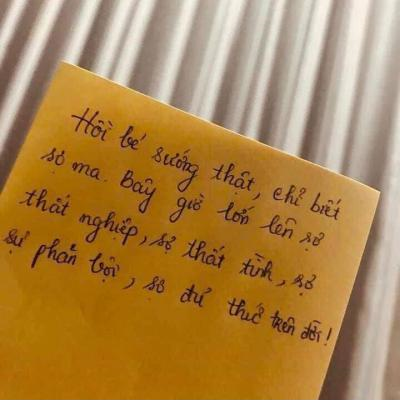 Hồi bé sướng thật, chỉ biết
sợ ma. Bây giờ lớn lên sợ
thất nghiệp, sợ thất tình, sợ
sự phản bội, sợ đủ thứ trên đời!